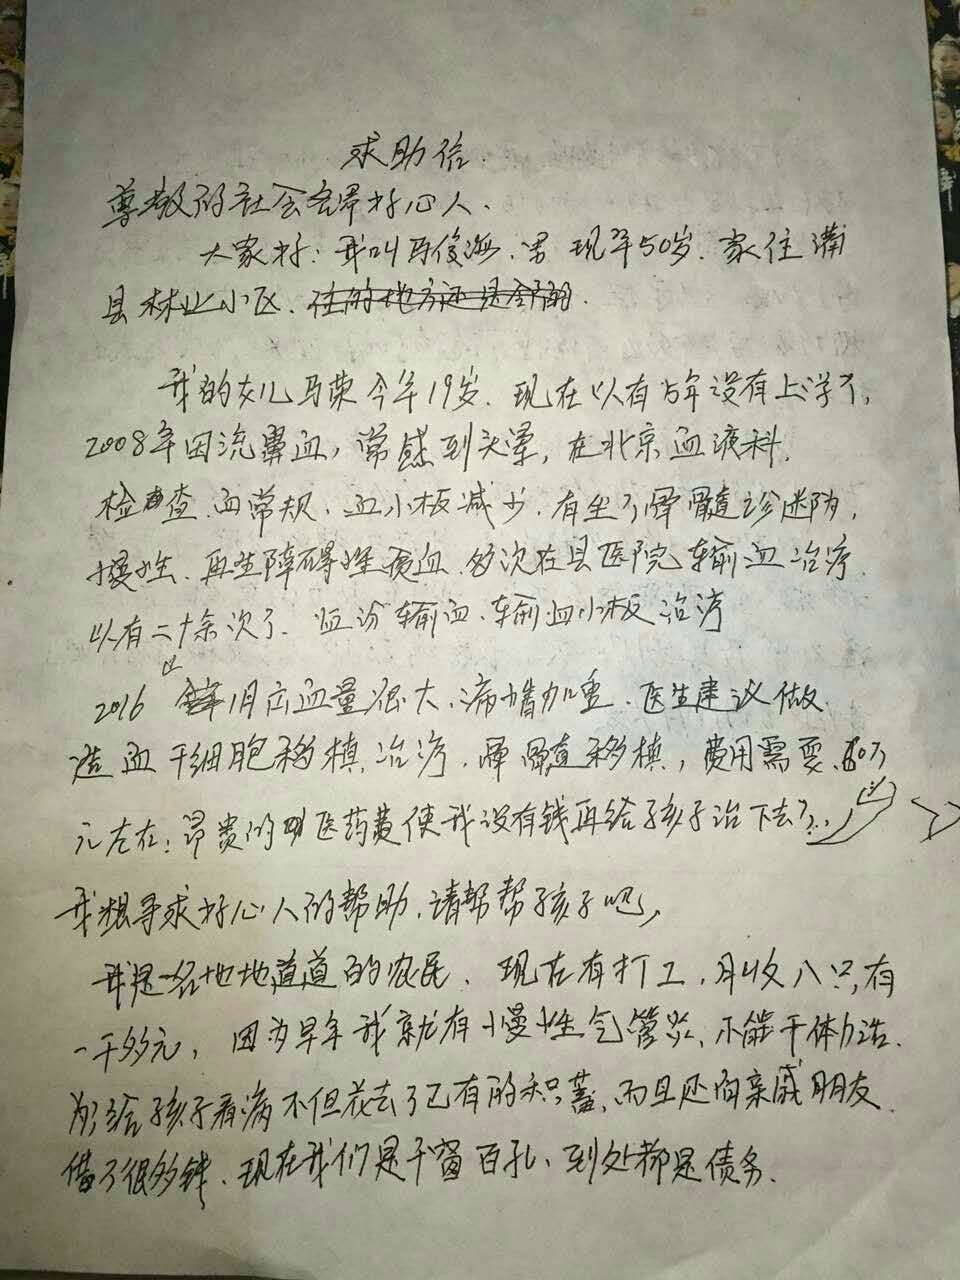 求助信.
尊敬的社会各界好心人、
大家好: 我叫马俊海、男 现年50岁. 家住
县林业小区、住的地方还是
我的女儿马荣今年19岁. 现在以有5年没有上学了,
2008年因流鼻血, 常感到头晕, 在北京血液科,
检查 血常规、血小板减少、有坐了骨髓诊断为,
慢性、再生障碍性贫血、多次在县医院输血治疗.
以有二十余次了. 输血、输血小板治疗
2016年1月应血量很大、病情加重、医生建议做、
造血干细胞移植治疗、骨髓移植, 费用需要、60万
元左右; 昂贵的医药费使我没有钱再给孩子治下去?..
我想寻求好心人的帮助、请帮帮孩子吧,
我是一名地地道道的农民、现在有打工, 月收入只有
一千多元, 因为早年我就有慢性气管炎、不能干体力活.
为给孩子看病不但花去了已有的积蓄, 而且还向亲戚朋友、
借了很多钱、现在我们是千窗百孔、到处都是债务.